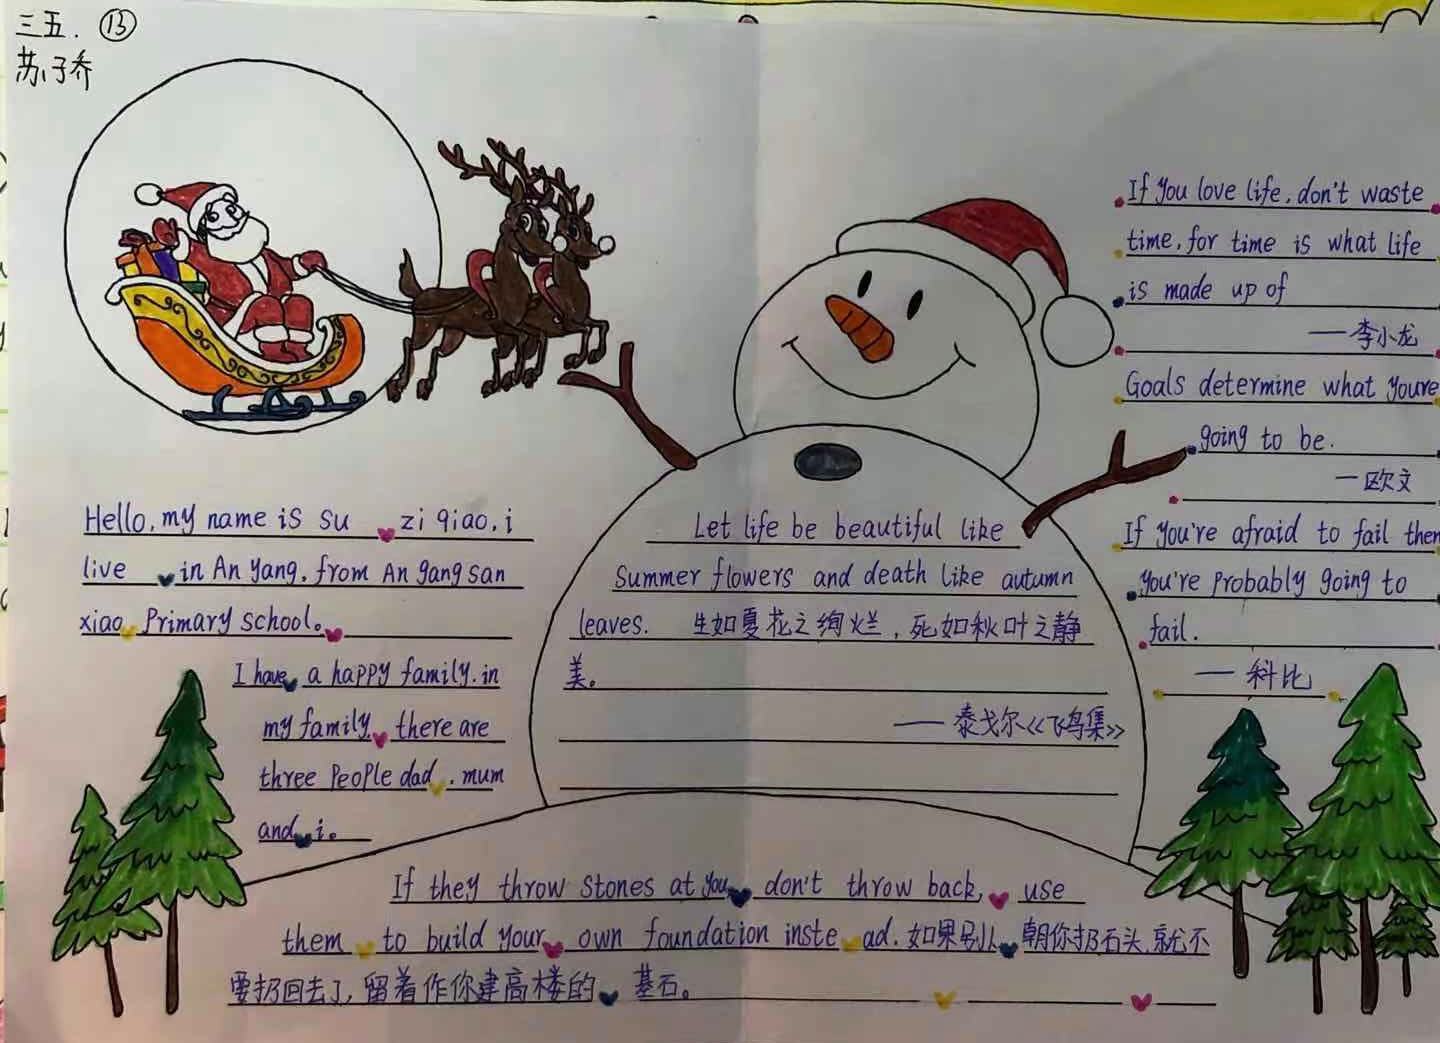 三五. ⑬
苏子乔
Hello, my name is su zi qiao, i
live in An yang, from An gang san
xiao Primary school。
I have a happy family, in
my family there are
three People dad , mum
and i。
Let life be beautiful like
summer flowers and death like autumn
leaves. 生如夏花之绚烂,死如秋叶之静
美。
——泰戈尔《飞鸟集》
If you love life, don't waste
time, for time is what life
is made up of
——李小龙
Goals determine what youre
going to be.
—欧文
If you're afraid to fail then
you're probably going to
fail.
——科比
If they throw stones at you don't throw back, use
them to build your own foundation inste ad. 如果别人朝你扔石头,就不
要扔回去了,留着作你建高楼的基石。